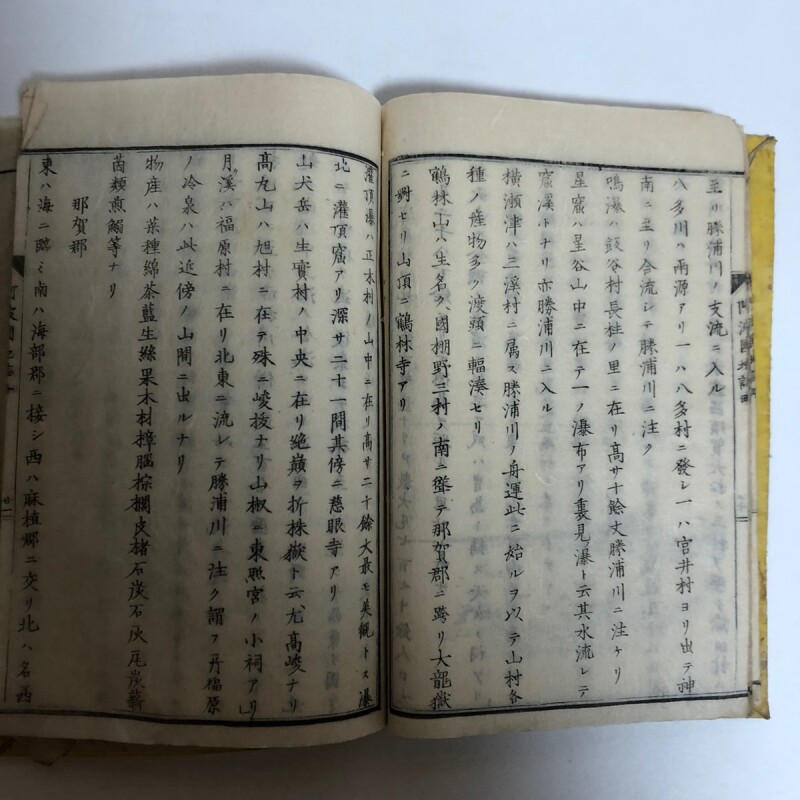 至リ勝浦川ノ支流ニ入ル
八多川ハ兩源アリ一ハ八多村ニ發シ一ハ宮井村ヨリ出テ神
南ニ至リ合流シテ勝浦川ニ注ク
鳴瀑ハ皷谷村長柱ノ里ニ在リ高サ十餘丈勝浦川ニ注ケリ
星窟ハ星谷山中ニ在テ一ノ瀑布アリ裏見ノ瀑ト云其水流レテ
窟溪トナリ亦勝浦川ニ入ル
橫瀬津ハ三溪村ニ属ス勝浦川ノ舟運此ニ始ルヲ以テ山村各
種ノ産物多ク渡頭ニ輻湊セリ
鶴林山ハ生名久國棚野三村ノ南ニ聳テ那賀郡ニ跨リ大龍嶽
ニ對セリ山頂ニ鶴林寺アリ
灌頂瀑ハ正木村ノ山中ニ在リ高サ二十餘丈最モ美觀トス瀑
北ニ灌頂窟アリ深サ二十一間其傍ニ慈眼寺アリ
山犬岳ハ生實村ノ中央ニ在リ絶巓ヲ折株嶽ト云尤高峻ナリ
高丸山ハ旭村ニ在テ殊ニ峻拔ナリ山椒ニ東照宮ノ小祠アリ
月溪ハ福原村ニ在リ北東ニ流レテ勝浦川ニ注ク謂フ所福原
ノ冷泉ハ此近傍ノ山間ニ出ルナリ
物産ハ菜種綿茶藍生絲果木材樟腦棕櫚皮楮石炭石灰瓦炭薪
菌類煎鰯等ナリ
那賀郡
東ハ海ニ臨ミ南ハ海部郡ニ接シ西ハ麻植郡ニ交リ北ハ名西